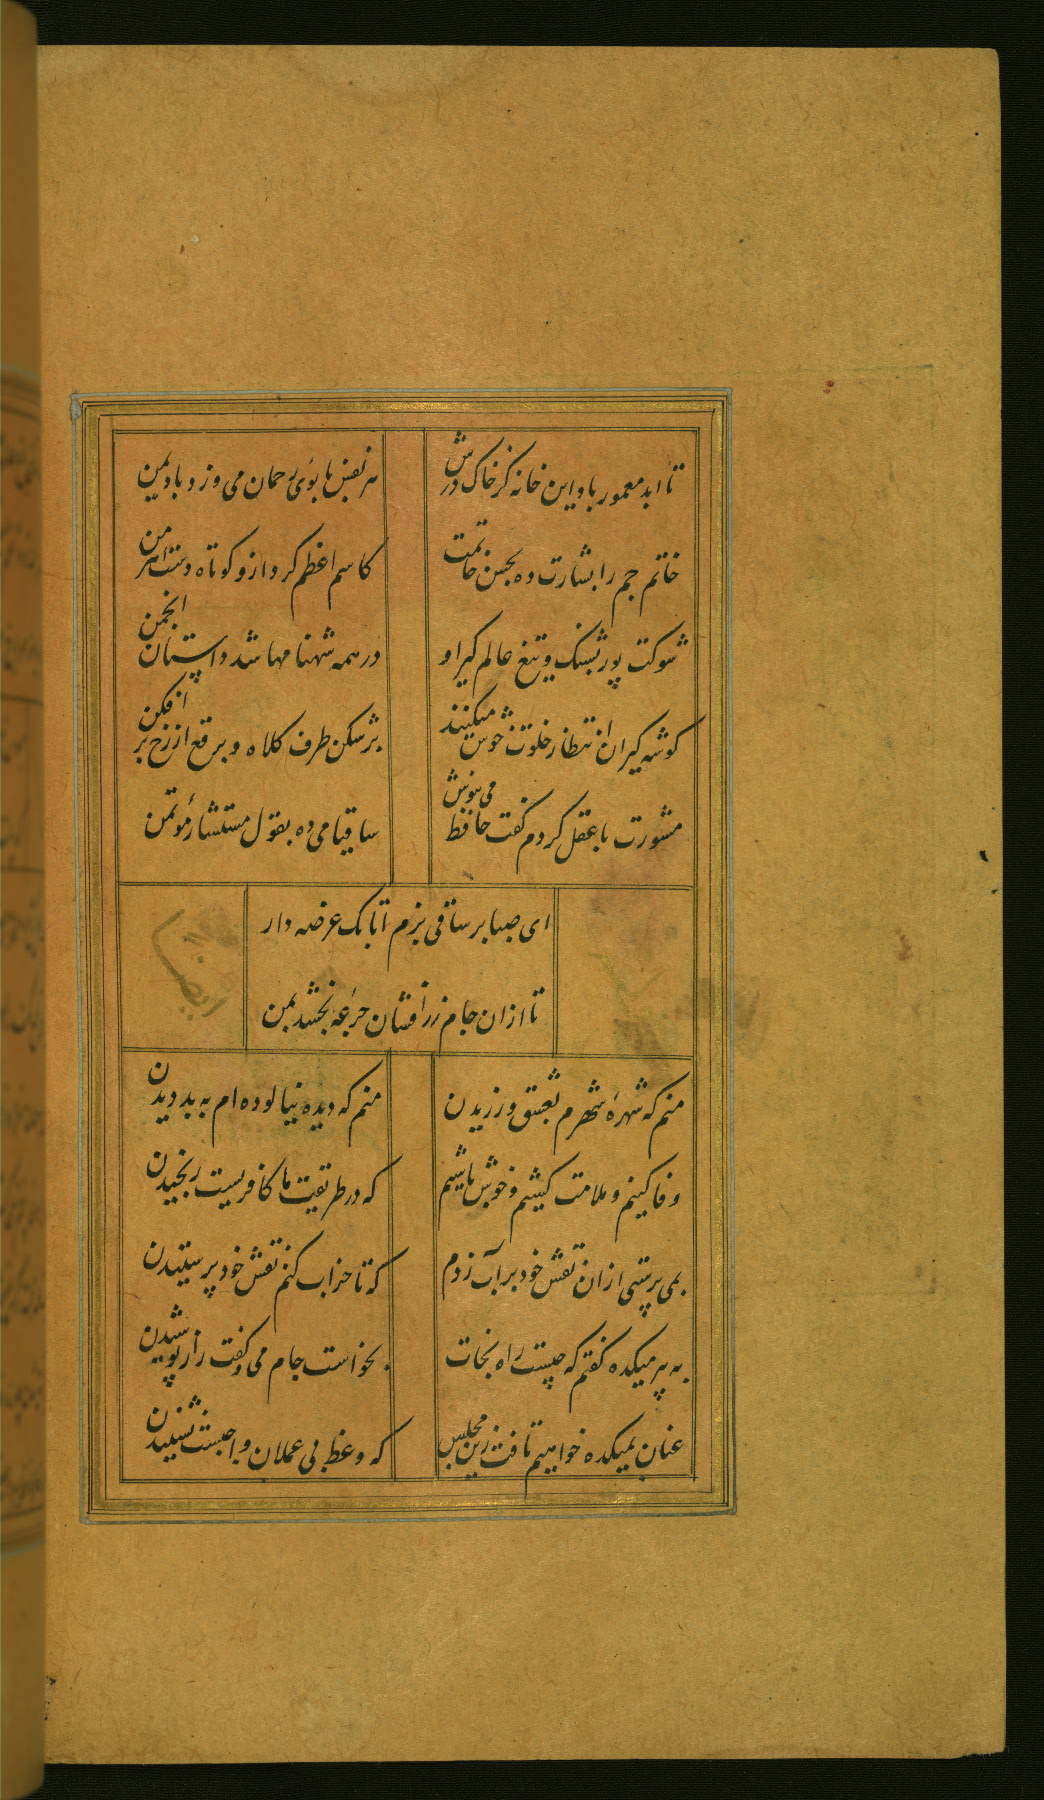 تا ابد معمور باد این خانه کز خاک درش
هر نفس با بوی رحمان می وزد باد یمن
خاتم جم را بشارت ده بحسن خاتمت
کاسم اعظم کرد ازو کوتاه دست اهرمن
شوکت پور پشنگ و تیغ عالم گیر او
در همه شهنامها شد داستان انجمن
گوشه گیران انتظار خلوت خوش میکنند
بر شکن طرف کلاه و برقع از رخ بر افکن
مشورت با عقل کردم گفت حافظ می بنوش
ساقیا می ده بقول مستشار مؤتمن
ای صبا بر ساقی بزم اتابک عرضه دار
تا ازان جام زرافشان جرعه بخشد بمن
منم که شهره شهرم بعشق ورزیدن
منم که دیده نیالوده ام به بد دیدن
وفا کنیم و ملامت کشیم و خوش باشیم
که در طریقت ما کافریست رنجیدن
بمی پرستی ازان نقش خود بر آب زدم
که تا خراب کنم نقش خود پرستیدن
به پیر میکده گفتم که چیست راه نجات
بخواست جام می و گفت راز پوشیدن
عنان بمیکده خواهیم تافت زین مجلس
که وعظ بی عملان واجبست نشنیدن